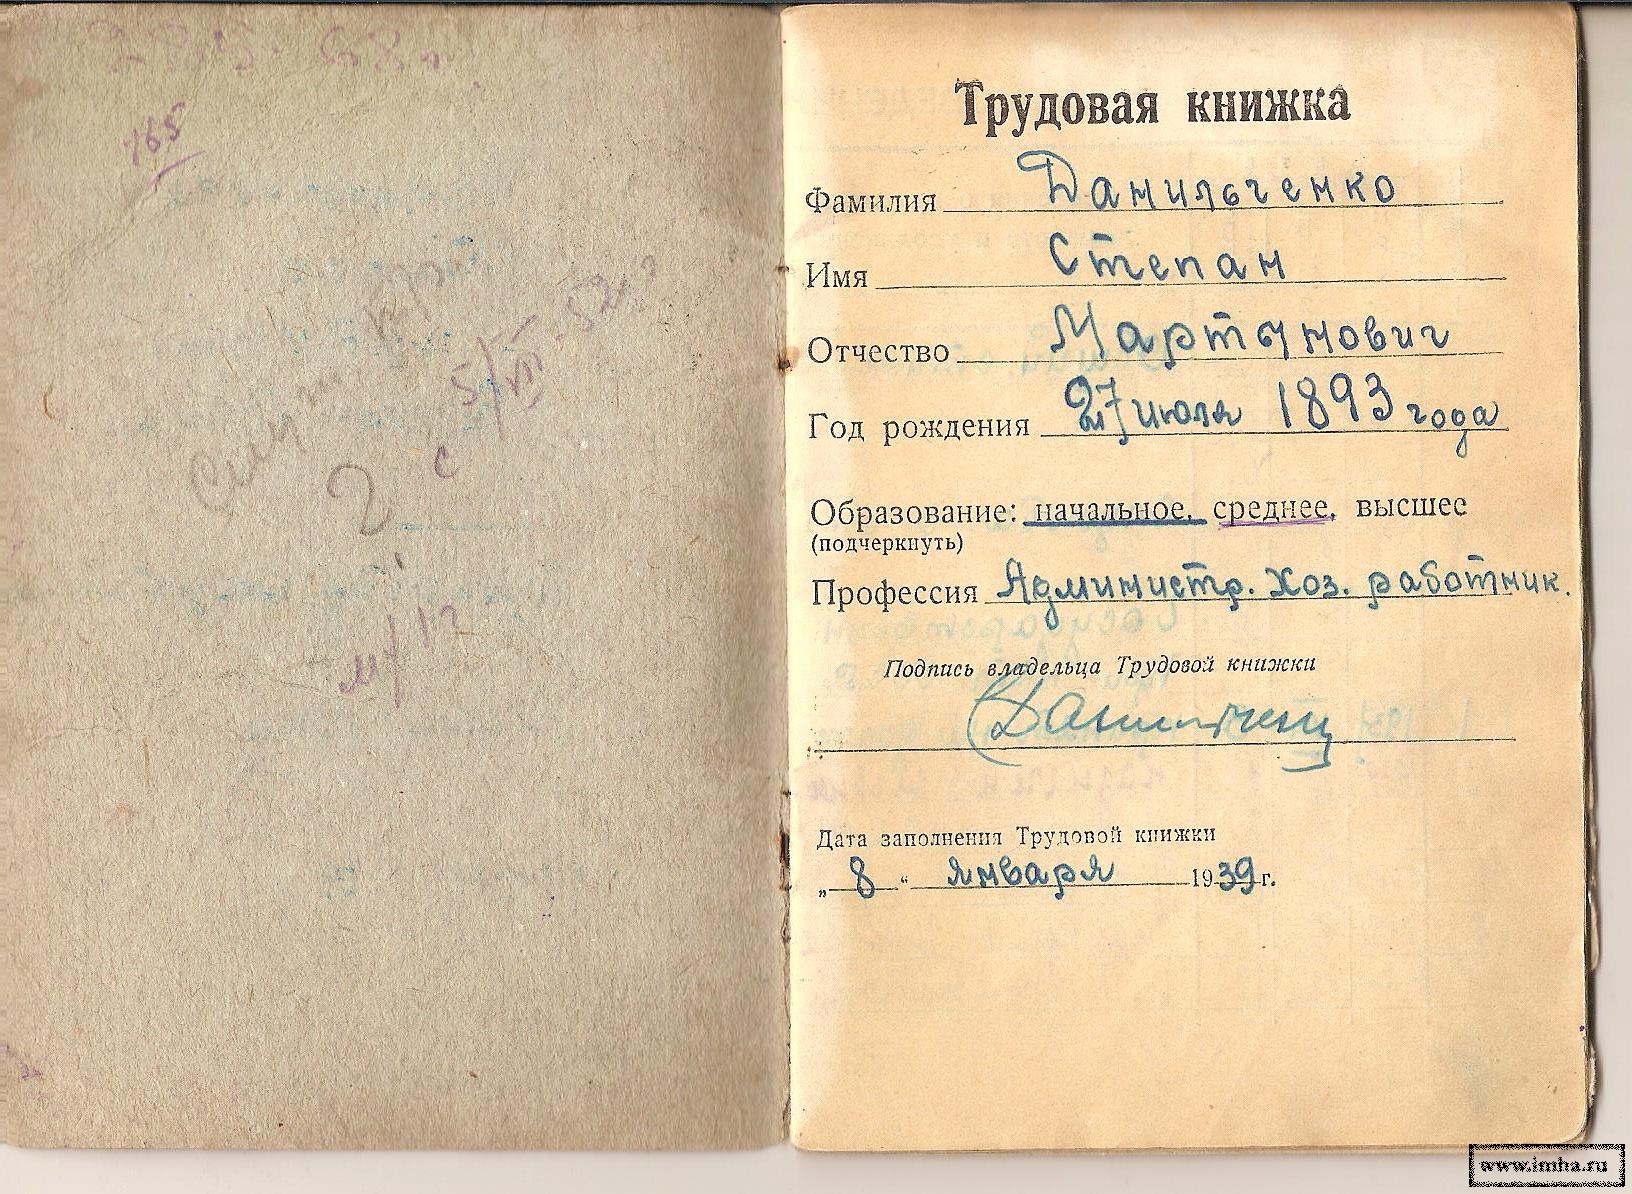 165
5/VI-52г.
с
2
Трудовая книжка
Фамилия Данильченко
Имя Степан
Отчество Мартынович
Год рождения 27 июля 1893 года
Образование: начальное, среднее, высшее
(подчеркнуть)
Профессия Администр. хоз. работник.
Подпись владельца Трудовой книжки
Дата заполнения Трудовой книжки
„8“ января 1939 г.
www.imha.ru